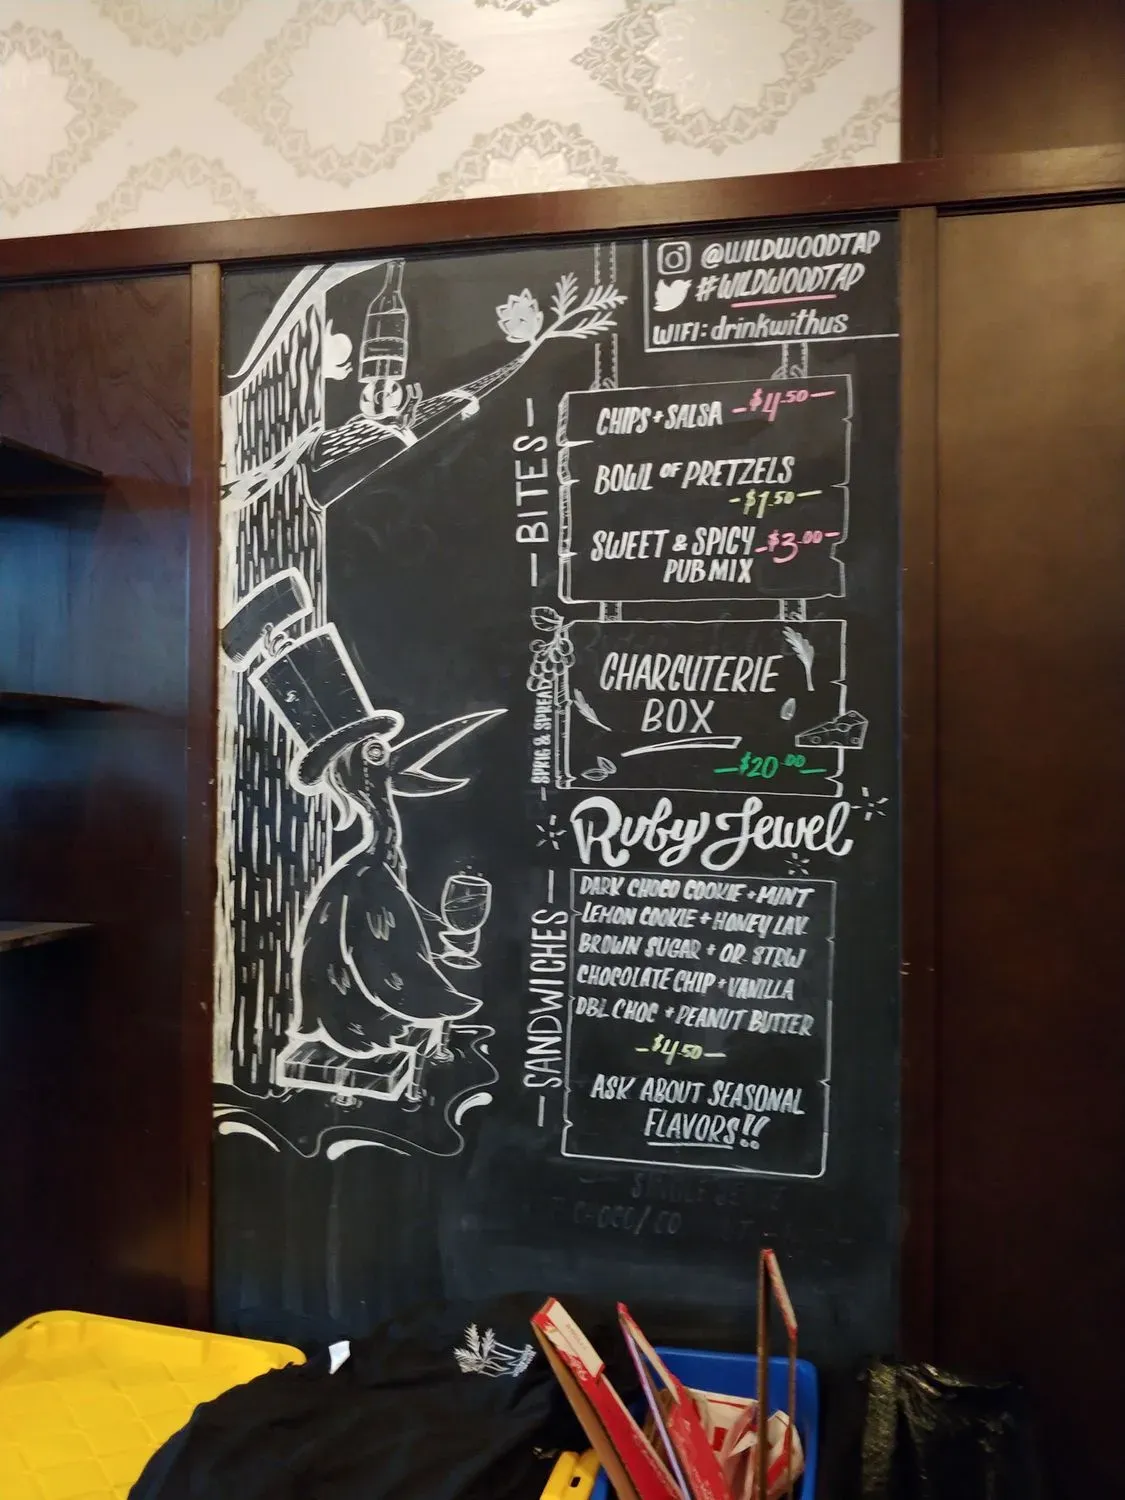 @WILDWOODTAP
#WILDWOODTAP
WIFI: drinkwithus
—BITES—
CHIPS + SALSA —$4.50—
BOWL OF PRETZELS
—$1.50—
SWEET & SPICY —$3.00—
PUB MIX
—SPRIG & SPREAD—
CHARCUTERIE
BOX
—$20.00—
Ruby Jewel
—SANDWICHES—
DARK CHOCO COOKIE + MINT
LEMON COOKIE + HONEY LAV.
BROWN SUGAR + OR. STRW
CHOCOLATE CHIP + VANILLA
DBL CHOC + PEANUT BUTTER
—$4.50—
ASK ABOUT SEASONAL
FLAVORS!!